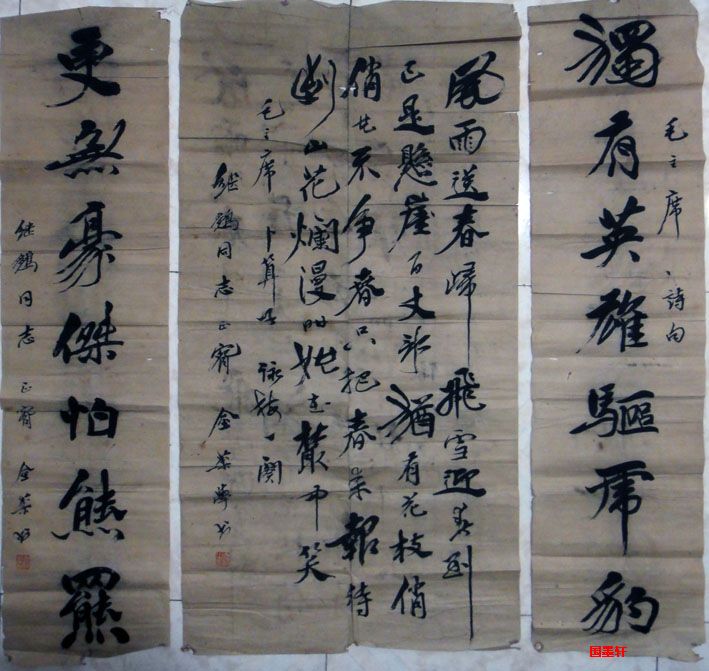 獨有英雄驅虎豹
毛主席詩句
風雨送春歸飛雪迎春到
已是懸崖百丈冰猶有花枝俏
俏也不争春只把春來報待
到山花爛漫时她在叢中笑
毛主席卜算子詠梅一闋
同志正
更無豪傑怕熊羆
同志正
国墨轩